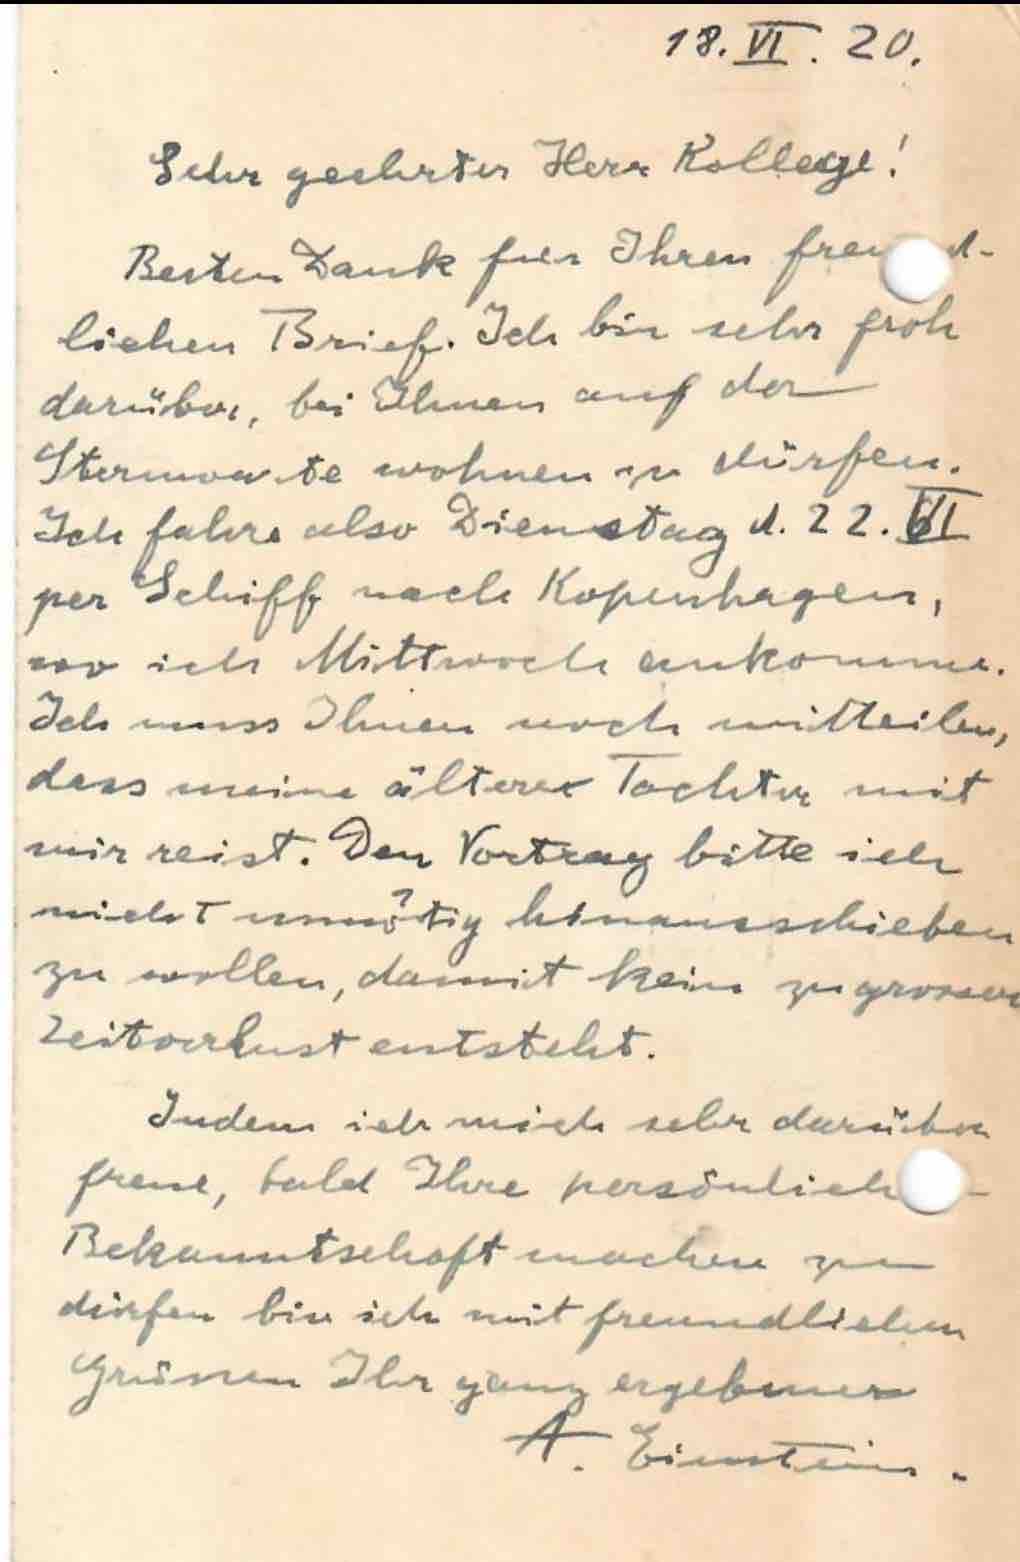 18. VI. 20.
Sehr geehrter Herr Kollege!
Besten Dank fuer Ihren freund-
lichen Brief. Ich bin sehr froh
darüber, bei Ihnen auf der
Sternwarte wohnen zu dürfen.
Ich fahre also Dienstag d. 22. VI
per Schiff nach Kopenhagen,
wo ich Mittwoch ankomme.
Ich muss Ihnen noch mitteilen,
dass meine ältere Tochter mit
mir reist. Den Vortrag bitte ich
nicht unnötig hinausschieben
zu wollen, damit kein zu grosser
Zeitverlust entsteht.
Indem ich mich sehr darüber
freue, bald Ihre persönliche
Bekanntschaft machen zu
dürfen bin ich mit freundlichen
Grüssen Ihr ganz ergebener
A. Einstein.